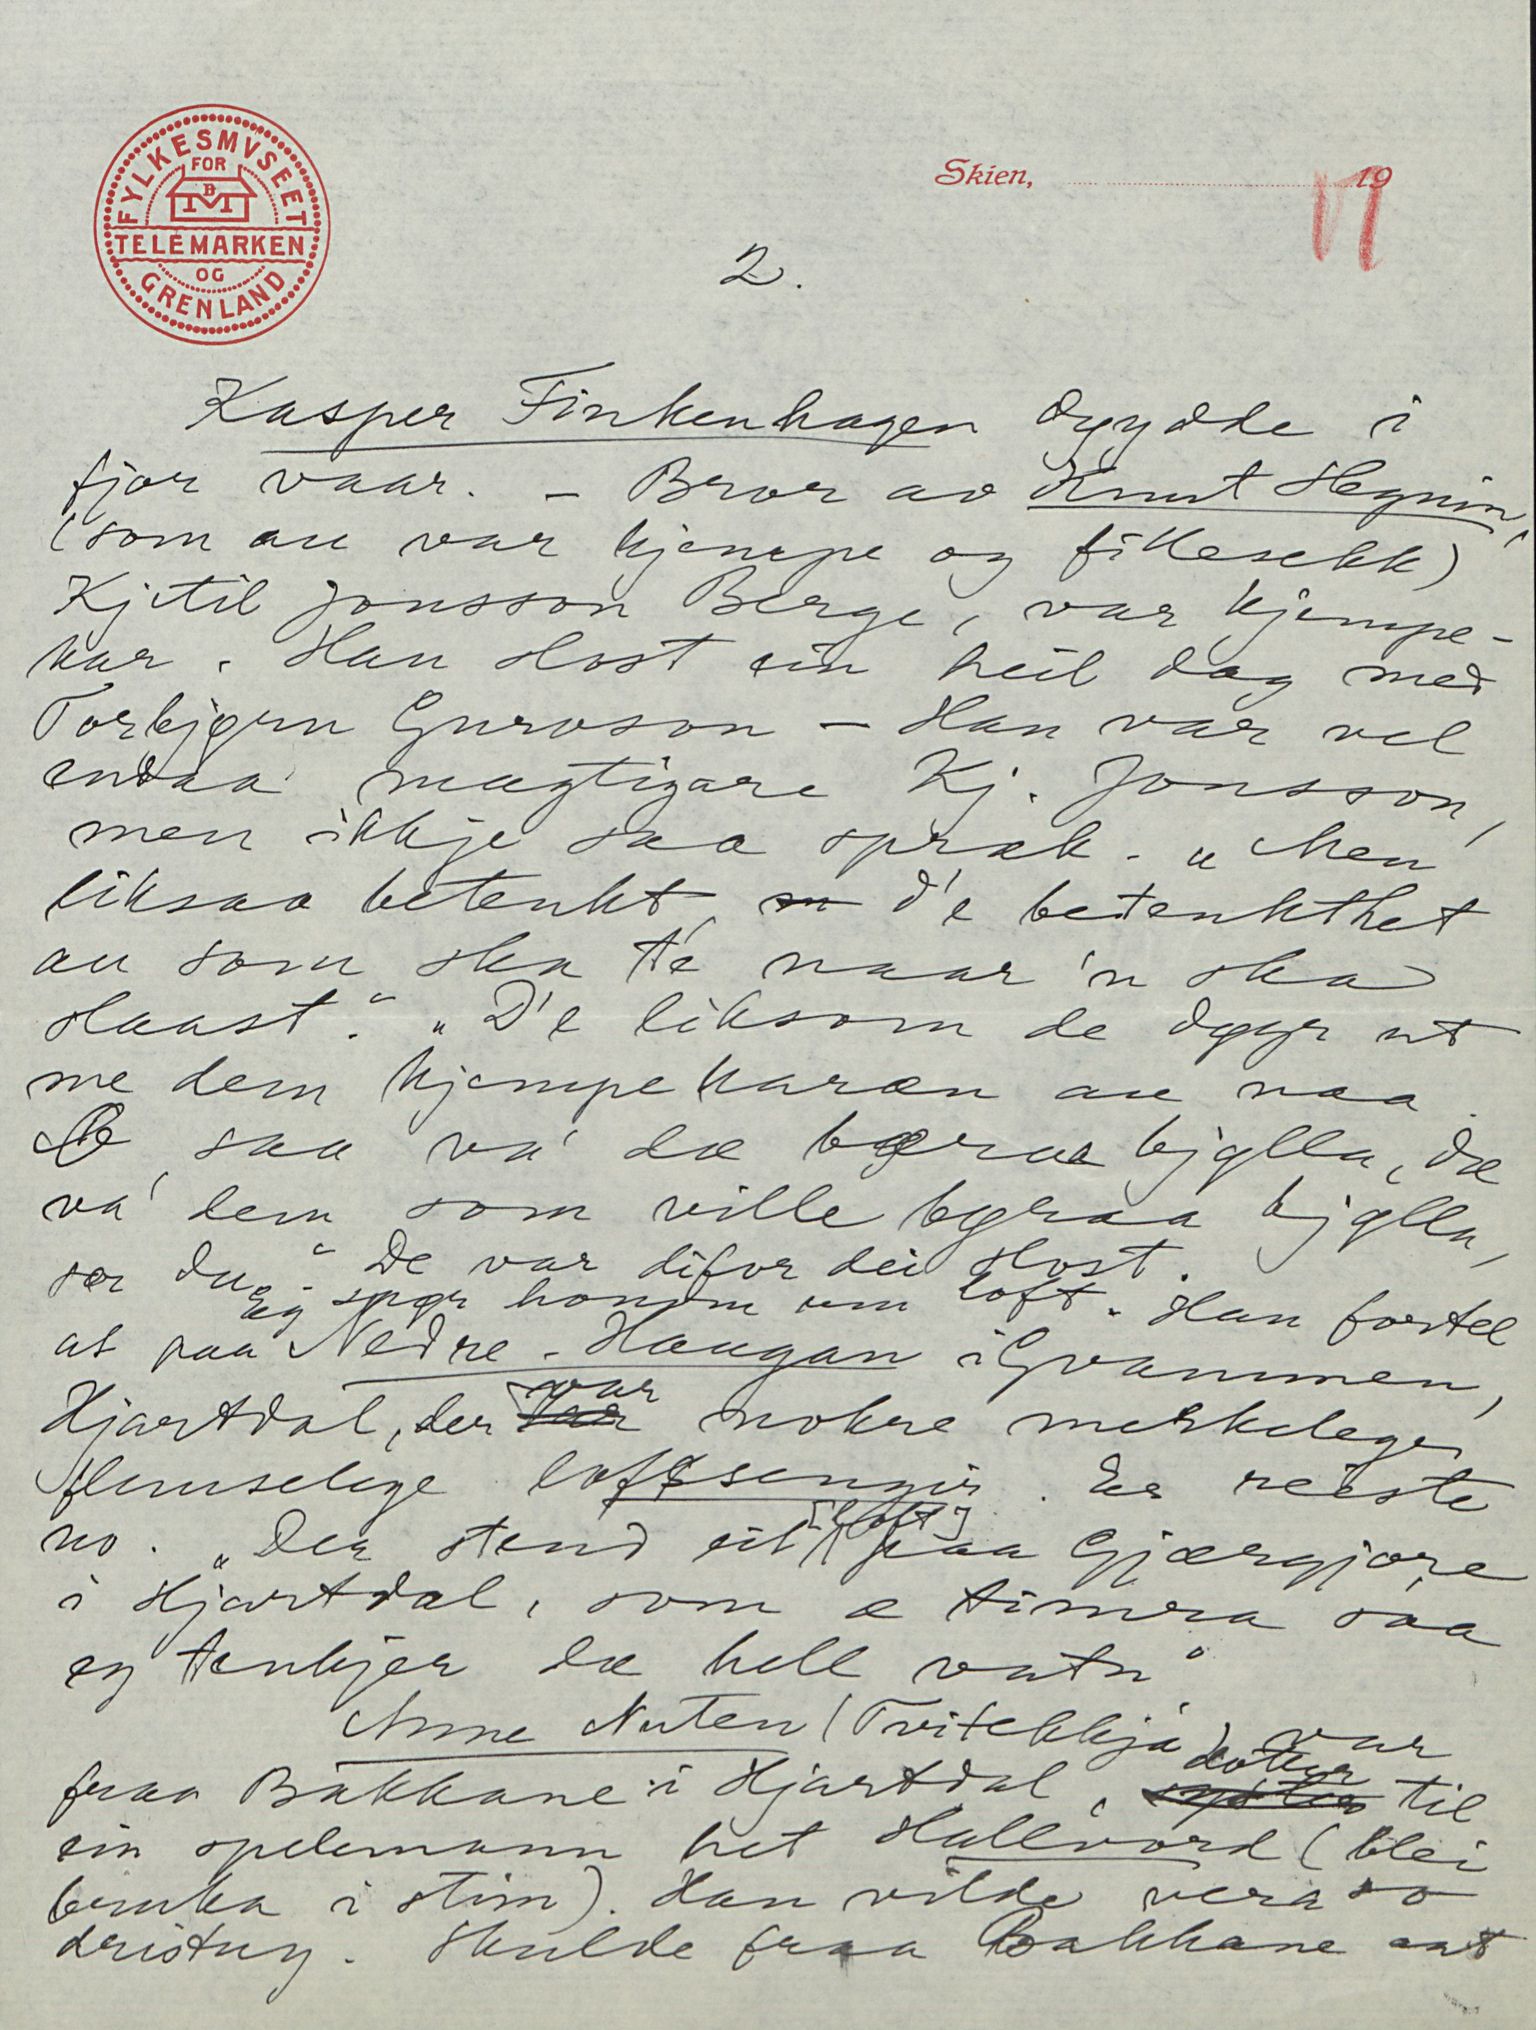 FYLKESMVSEET
FOR
BM
TELEMARKEN
OG
GRENLAND
Skien, 19
17
2.
Kasper Finkenhagen døydde i
fjor vaar. – Bror av Knut Hegnin,
(som au var kjempe og fillesekk)
Kjetil Jonsson Berge, var kjempe-
kar. Han slost ein heil dag med
Torbjørn Guroson – Han var vel
endaa magtigare Kj. Jonsson,
men ikkje saa spræk. „Men
liksaa betenkt, d'e betenkthet
au som ska te naar 'n ska
slaast." „D'e liksom de døyr ut
me dem kjempekaran au naa.
O saa va' dæ bæraa bjølla, dæ
va' dem som ville bæraa bjølla,
ser du." De var difor dei slost.
Eg spør honom um loft. Han fortel
at paa Nedre-Haugan i Gvammen,
Hjartdal, der var nokre merkelege
flenselege loftsengir. Er reiste
no. „Der stend eit [loft] paa Gjærgjore
i Hjartdal, som æ timra saa
eg tenkjer dæ hell vatn"
Anne Nuten (Tvitekkja) var
fraa Bakkane i Hjartdal, doter til
ein spelemann het Hallvord (blei
bruka i stim). Han vilde vera so
dristug. Skulde fraa Bakkane aat